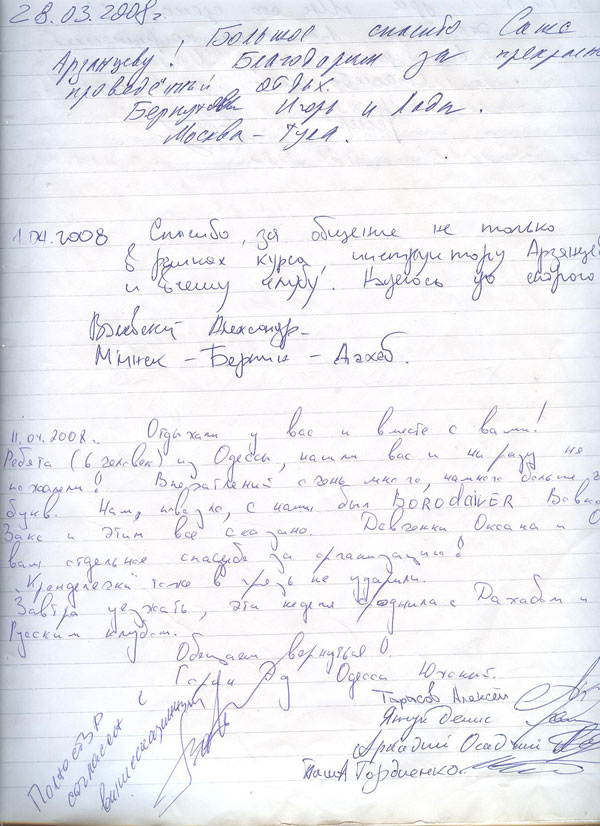 28.03.2008г.
Большое спасибо Саше
Арзянцеву! Благодарим за прекрасно
проведённый отдых.
Игорь и Лада.
Москва – Тула.
1.04.2008 Спасибо, за общение не только
в рамках курса инструктору Арзянцев
и всему клубу! Надеюсь до скорого
Александр.
Минск – Берлин – Дахаб.
11.04.2008г. Отдыхали у вас и вместе с вами!
Ребята (6 человек) из Одессы, нашли вас и ни разу не
пожалели! Впечатлений очень много, намного больше
букв. Нам, повезло, с нами был BORODAIVER Вовка
Закс и этим все сказано. Девчонки Оксана и О
вам отдельное спасибо за организацию!
Кренделёчки тоже в грязь не ударили.
Завтра уезжать, эта неделя сроднила с Дахабом и
Русским клубом.
Обещаем вернуться!
Гарри Эд Одесса Южный.
Тарасов Алексей
Денис
Аркадий Осадчий
Паша Гордиенко
Полностью
согласен с
вышесказанным